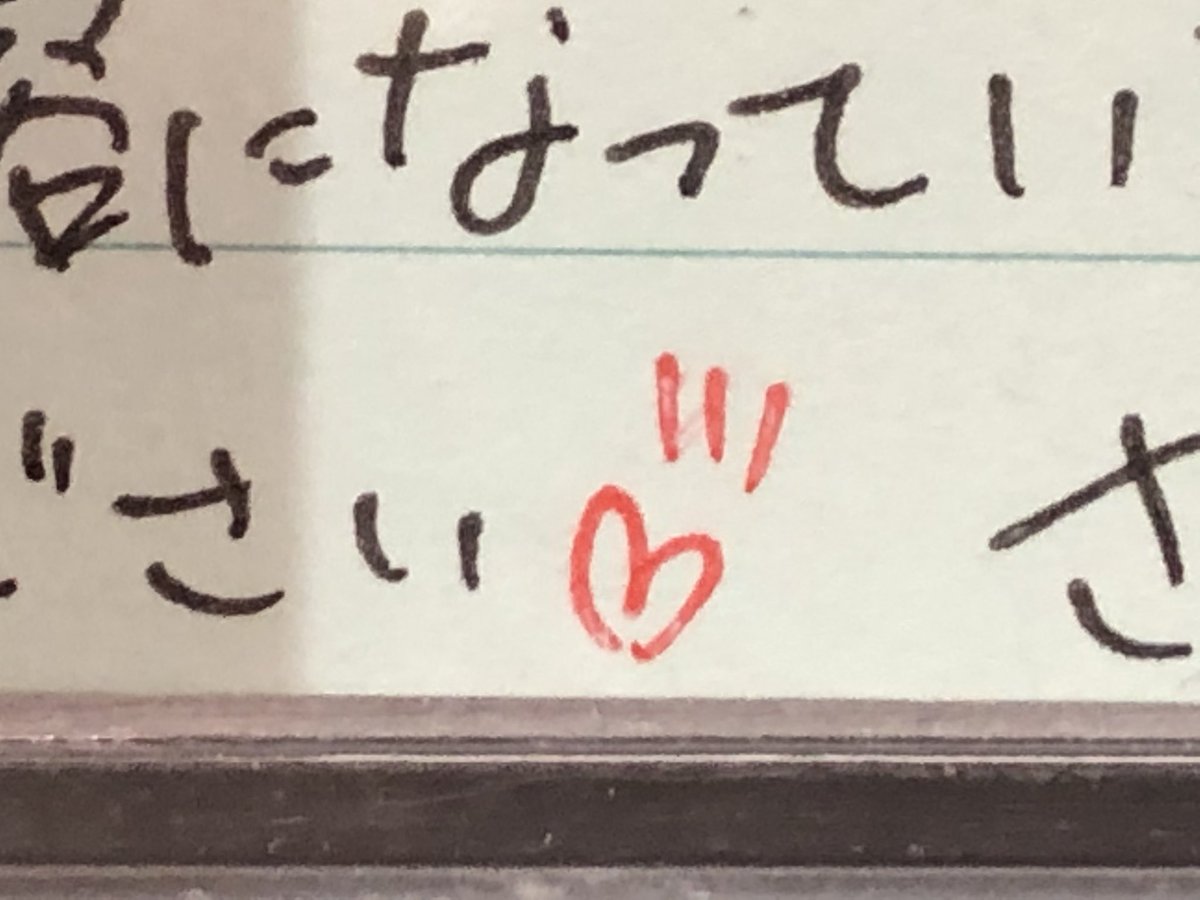 になってい
ださい♡ さ